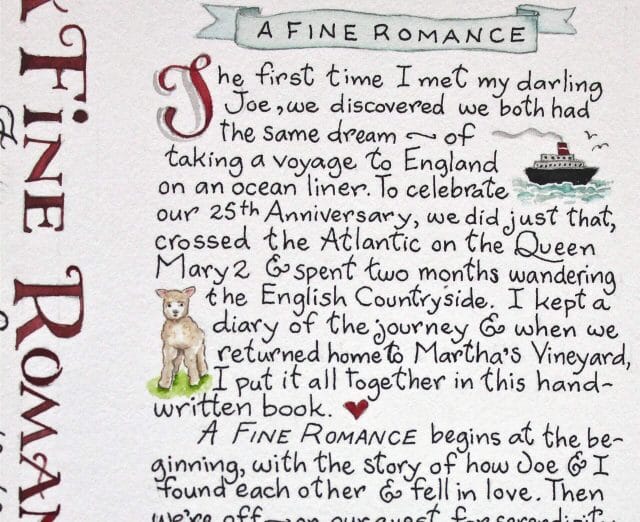 A FINE ROMANCE
The first time I met my darling
Joe, we discovered we both had
the same dream ~ of
taking a voyage to England
on an ocean liner. To celebrate
our 25th Anniversary, we did just that,
crossed the Atlantic on the Queen
Mary 2 & spent two months wandering
the English Countryside. I kept a
diary of the journey & when we
returned home to Martha's Vineyard,
I put it all together in this hand-
written book.
A FINE ROMANCE begins at the be-
ginning, with the story of how Joe & I
found each other & fell in love. Then
we're off — on our quest for serendipity
FINE ROMAN